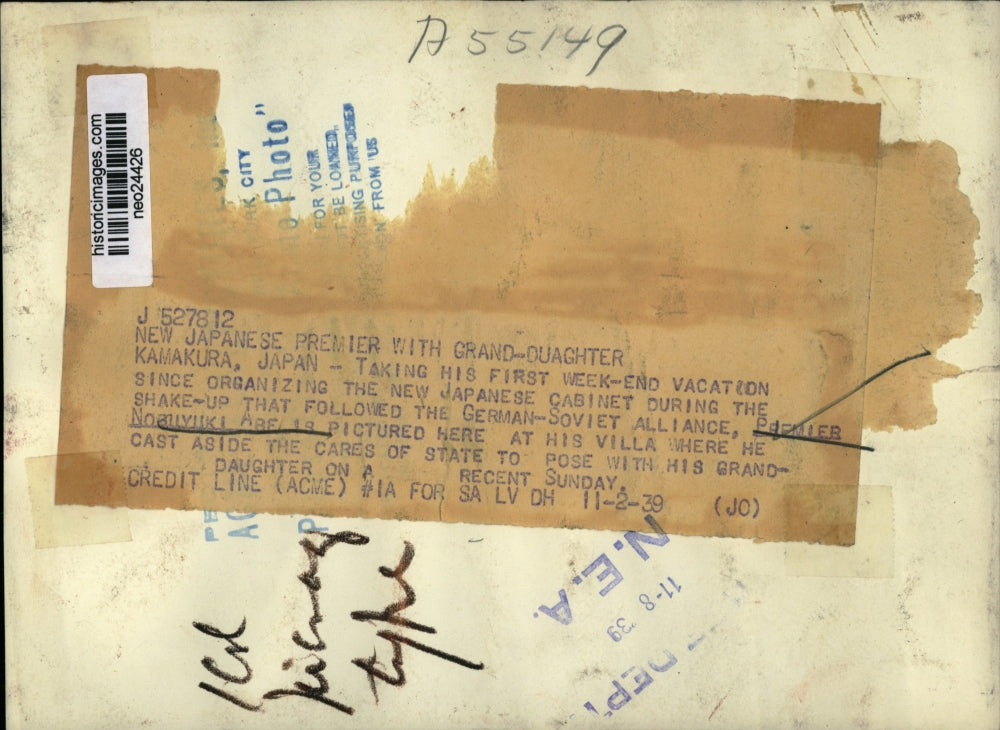 A 55149
historicimages.com
neo24426
K CITY
Photo"
FOR YOUR
BE LOANED,
SING PURPOSES
FROM US
J 527812
NEW JAPANESE PREMIER WITH GRAND-DUAGHTER
KAMAKURA, JAPAN - TAKING HIS FIRST WEEK-END VACATION
SINCE ORGANIZING THE NEW JAPANESE CABINET DURING THE
SHAKE-UP THAT FOLLOWED THE GERMAN-SOVIET ALLIANCE, PREMIER
NOBUYUKI ABE IS PICTURED HERE AT HIS VILLA WHERE HE
CAST ASIDE THE CARES OF STATE TO POSE WITH HIS GRAND-
DAUGHTER ON A RECENT SUNDAY.
CREDIT LINE (ACME) #1A FOR SA LV DH 11-2-39 (JO)
N. E. A.
11-8 39
DEPT
1 col
type